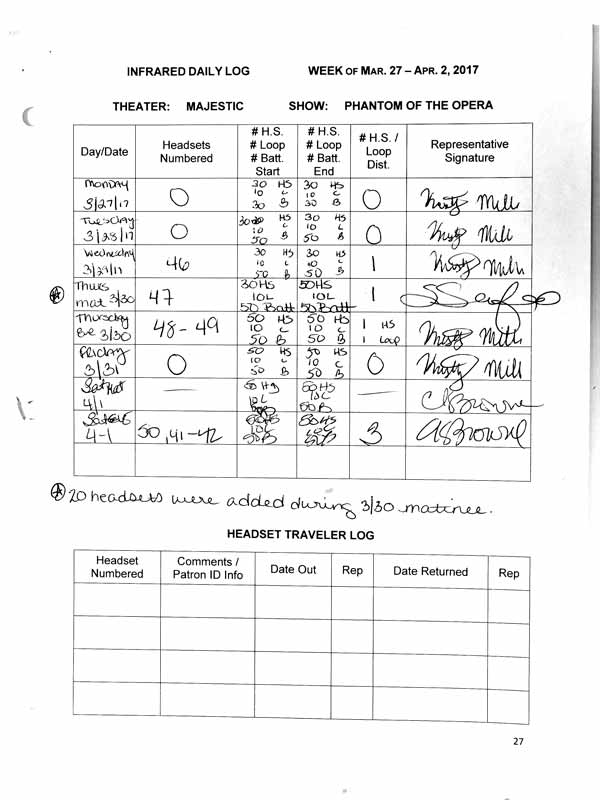 INFRARED DAILY LOG WEEK OF MAR. 27 – APR. 2, 2017
THEATER: MAJESTIC SHOW: PHANTOM OF THE OPERA
Day/Date Headsets Numbered # H.S. # Loop # Batt. Start # H.S. # Loop # Batt. End # H.S. / Loop Dist. Representative Signature
Monday 3/27/17 0 30 HS 10 L 30 B 30 HS 10 L 30 B 0
Tuesday 3/28/17 0 30 HS 10 L 50 B 30 HS 10 L 50 B 0
Wednesday 3/29/17 46 30 HS 10 L 50 B 30 HS 10 L 50 B 1
Thurs mat 3/30 47 30HS 10L 50 Batt 50HS 10L 50 Batt 1
Thursday Eve 3/30 48-49 50 HS 10 L 50 B 50 HS 10 L 50 B 1 HS 1 Loop
Friday 3/31 0 50 HS 10 L 50 B 50 HS 10 L 50 B 0
Sat Mat 4/1 — 50 HS 10L 50HS 10L 50B — CSBrowne
4-1 50, 41-42 50HS 10L 50B 50HS 10L 50B 3 CSBrowne
20 headsets were added during 3/30 matinee.
HEADSET TRAVELER LOG
Headset Numbered Comments / Patron ID Info Date Out Rep Date Returned Rep
27